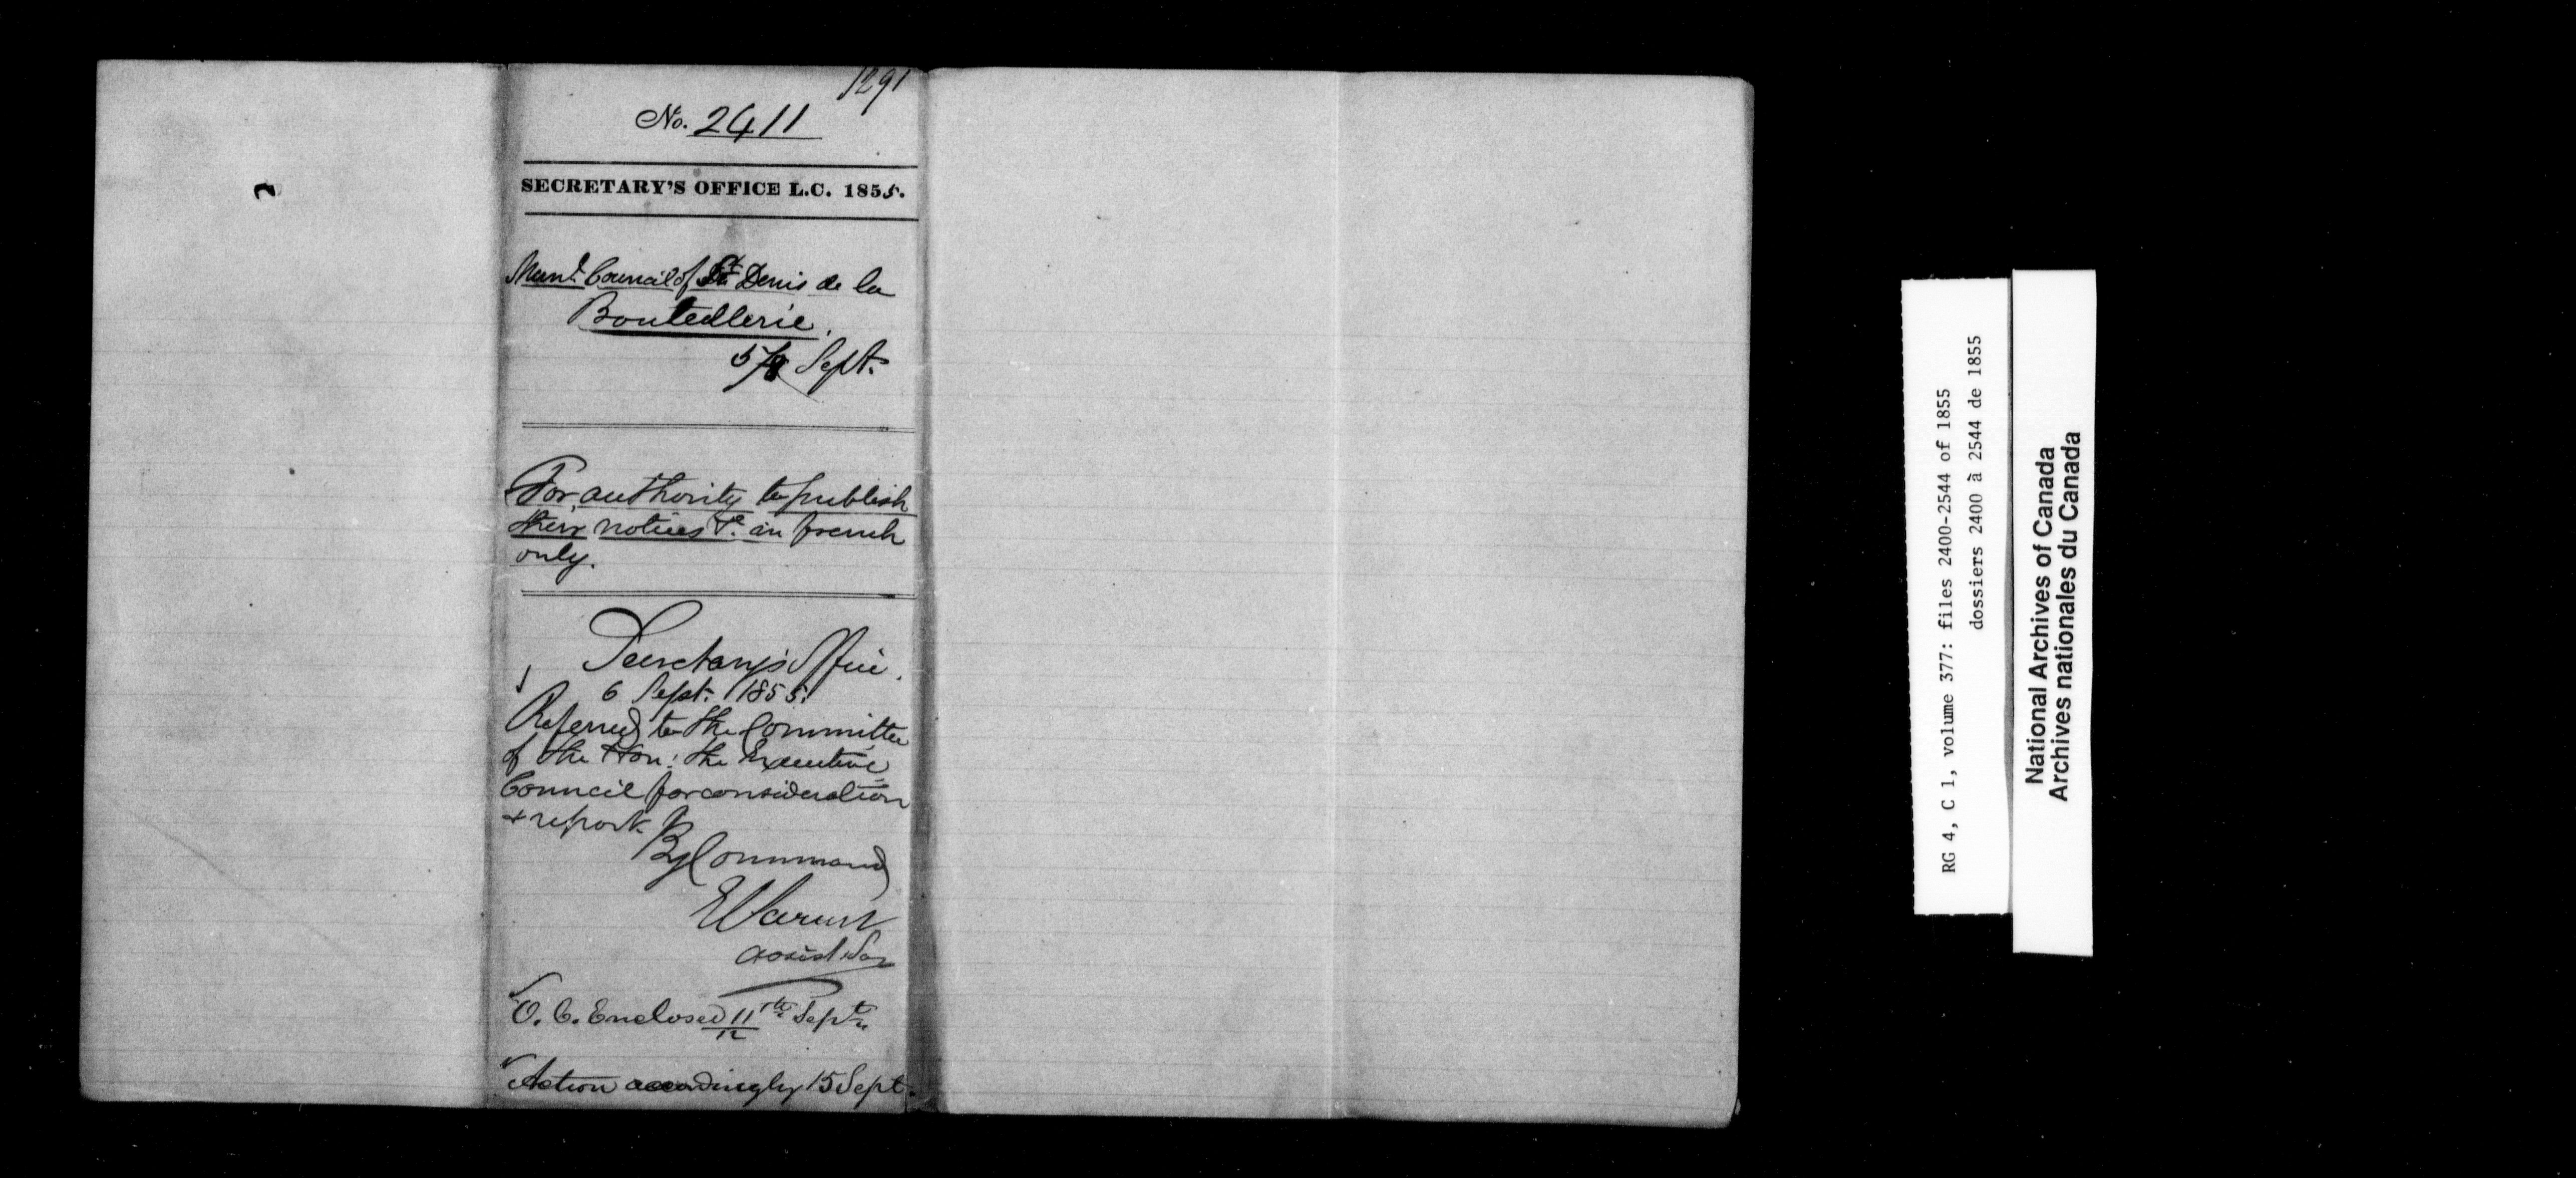 1291
No. 2411
SECRETARY'S OFFICE L.C. 1855.
Munl. Council of St. Denis de la
Bouteillerie.
5/8 Sept.
For authority to publish
their notices &c. in french
only.
Secretary's Office.
6 Sept. 1855.
Referred to the Committee
of the Hon: the Executive
Council for consideration
+ report.
By Command
Assist Secy
O. C. Enclosed 11th Sept
12
Action accordingly 15 Sept.
RG 4, C 1, volume 377: files 2400-2544 of 1855
dossiers 2400 à 2544 de 1855
National Archives of Canada
Archives nationales du Canada